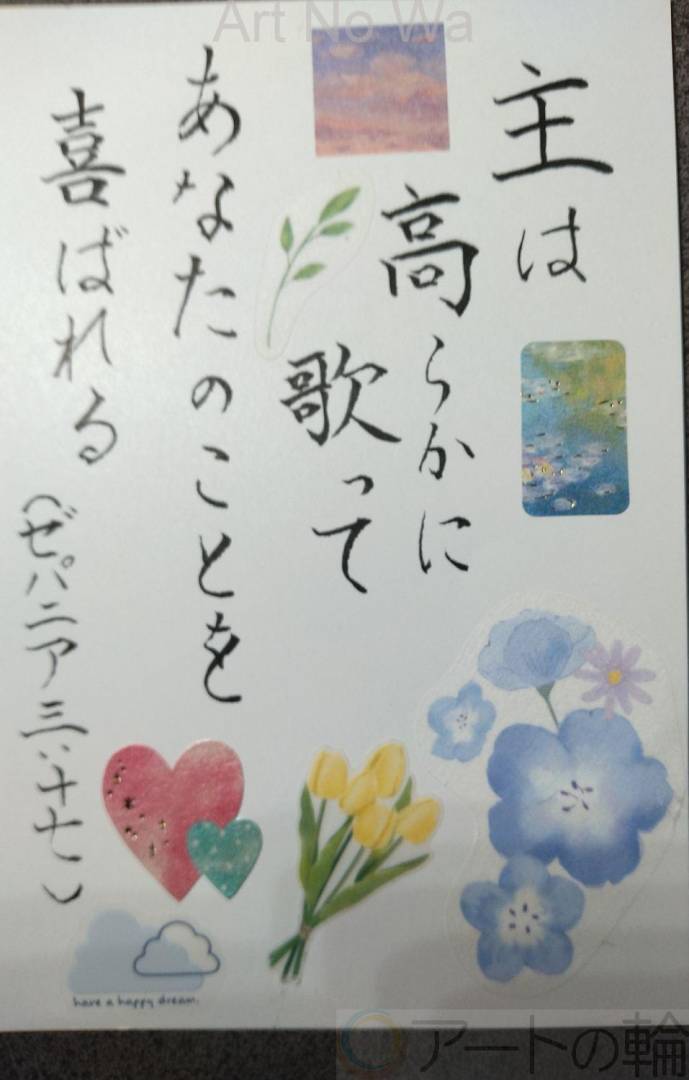 Art No Wa
主は
高らかに
歌って
あなたのことを
喜ばれる
(ゼパニア三:十七)
have a happy dream.
アートの輪